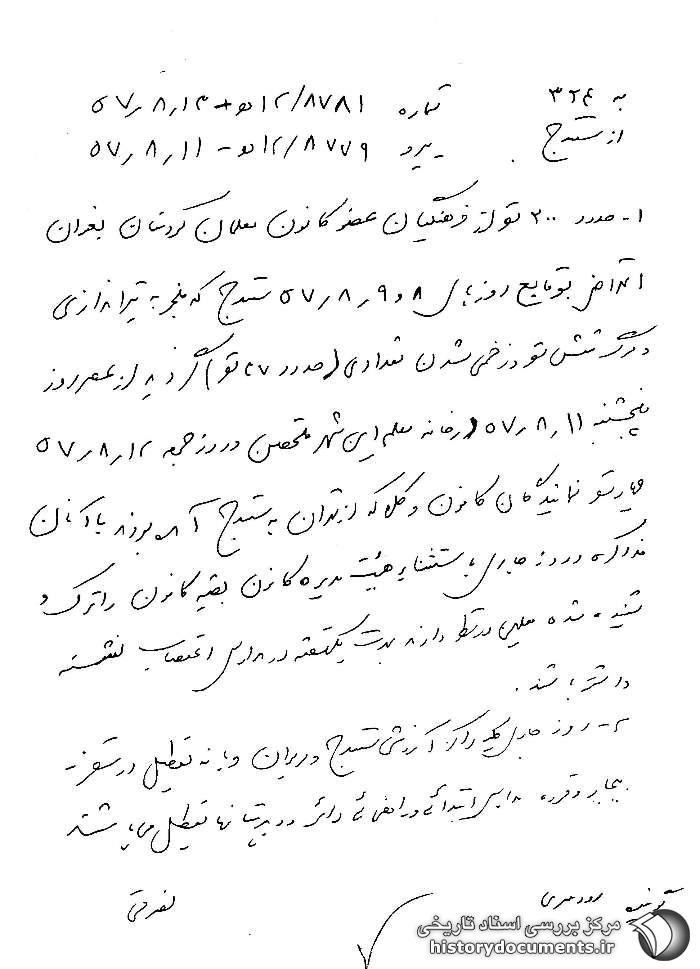 به ۳۲۴ شماره ۱۲/۸۷۸۱ هـ ۵۷٫۸٫۱۳
از سنندج پیرو ۱۲/۸۷۷۹ هـ - ۵۷٫۸٫۱۱
۱- حدود ۳۰۰ تن از فرهنگیان عضو کانون معلمان کردستان بعنوان
اعتراض بوقایع روزهای ۸ و ۹٫۸٫۵۷ سنندج که منجر به تیراندازی
و مرگ شش تن و زخمی شدن تعدادی (حدود ۴۷ تن) گردید از عصر روز
پنجشنبه ۵۷٫۸٫۱۱ در خانه معلم این شهر متحصن و روز جمعه ۵۷٫۸٫۱۲
چهار تن نمایندگان کانون وکلا که از تهران به سنندج آمده بودند با آنان
مذاکره و روز جاری باستثناء هیئت مدیره کانون بقیه کانون را ترک و
شنیده شده معلمین در نظر دارند بمدت یکهفته در مدارس اعتصاب نشسته
داشته باشند.
۲- روز جاری کلیه مراکز آموزشی سنندج و مریوان و بانه تعطیل و در سقز -
بیجار و قروه مدارس ابتدائی و راهنمائی دائر و دبیرستانها تعطیل می‌باشند
گوینده
مرکز بررسی اسناد تاریخی
historydocuments.ir